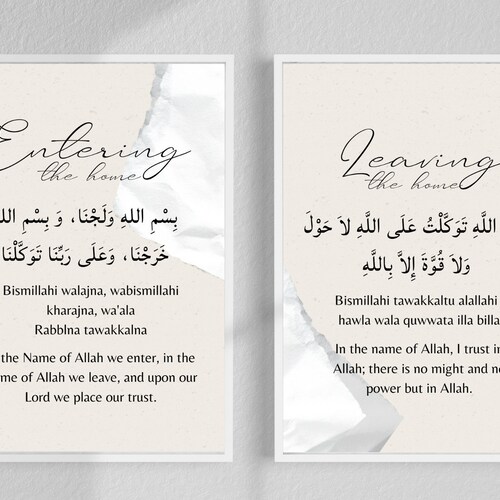 Entering
the home
بِسْمِ اللهِ وَلَجْنَا، وَ بِسْمِ
خَرَجْنَا، وَعَلَى رَبِّنَا تَوَكَّلْنَا
Bismillahi walajna, wabismillahi
kharajna, wa'ala
Rabblna tawakkalna
the Name of Allah we enter, in the
me of Allah we leave, and upon our
Lord we place our trust.
Leaving
the home
اللَّهِ تَوَكَّلْتُ عَلَى اللَّهِ لاَ حَوْلَ
وَلاَ قُوَّةَ إِلاَّ بِاللَّهِ
Bismillahi tawakkaltu alallahi
hawla wala quwwata illa billa
In the name of Allah, I trust in
Allah; there is no might and no
power but in Allah.